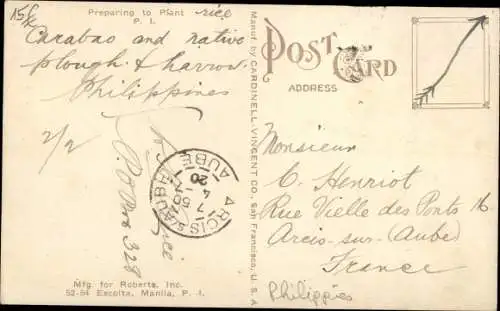 Preparing to Plant rice
P. I.
Carabao and native
plough & harrow
Philippines
2/2
P.O Box 328
ARCIS S/ AUBE
AUBE
7 50
4 - 7
20
Mfg. for Roberts, Inc.
52-54 Escolta, Manila, P. I.
Manuf. by CARDINELL-VINCENT CO., San Francisco, U. S. A.
POST CARD
ADDRESS
Monsieur
C. Henriot
Rue Vielle des Ponts 16
Arcis-sur-(Aube)
France
Philippies